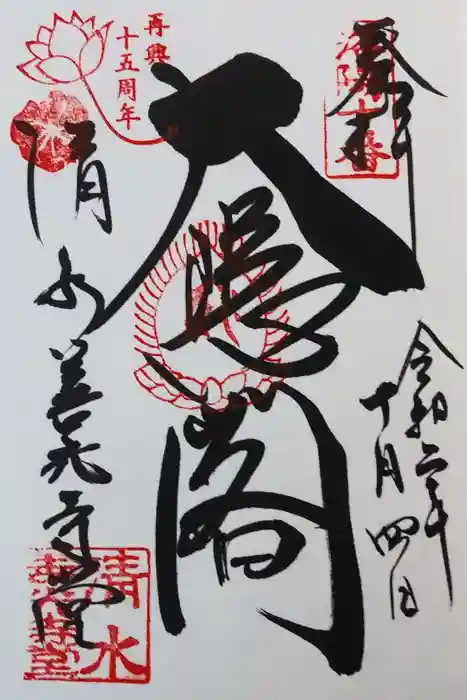 奉拝
洛陽十番
令和二年
十月四日
大悲閣
再興
十五周年
清水善光寺堂
清水